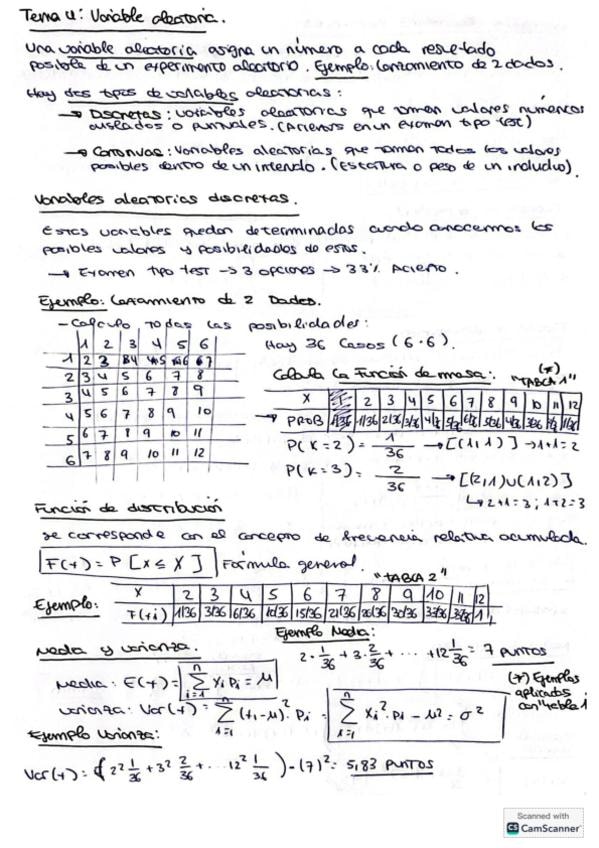 Tema 4: Variable aleatoria.
Una variable aleatoria asigna un número a cada resultado
posible de un experimento aleatorio. Ejemplo: Lanzamiento de 2 dados.
Hay dos tipos de variables aleatorias:
→ Discretas: variables aleatorias que toman valores numéricos
aislados o puntuales. (Aciertos en un examen tipo test)
→ Continuas: Variables aleatorias que toman todos los valores
posibles dentro de un intervalo. (Estatura o peso de un individuo).
Variables aleatorias discretas.
Estas variables quedan determinadas cuando conocemos los
posibles valores y posibilidades de estas.
→ Examen tipo test → 3 opciones → 33% Acierto.
Ejemplo: Lanzamiento de 2 Dados.
- Calculo todas las posibilidades:
1 2 3 4 5 6
1 2 3 4 5 6 7
2 3 4 5 6 7 8
3 4 5 6 7 8 9
4 5 6 7 8 9 10
5 6 7 8 9 10 11
6 7 8 9 10 11 12
Hay 36 Casos (6·6).
Calcula la Función de masa: (*) "TABLA 1"
X 2 3 4 5 6 7 8 9 10 11 12
→ PROB 1/36 2/36 3/36 4/36 5/36 6/36 5/36 4/36 3/36 2/36 1/36
P(X=2) = 1/36 → [(1,1)] → 1+1=2
P(X=3) = 2/36 → [(2,1)∪(1,2)]
↳ 2+1=3; 1+2=3
Función de distribución
se corresponde con el concepto de frecuencia relativa acumulada.
F(x) = P[x ≤ X] Fórmula general.
"TABLA 2"
Ejemplo:
X 2 3 4 5 6 7 8 9 10 11 12
F(xi) 1/36 3/36 6/36 10/36 15/36 21/36 26/36 30/36 33/36 35/36 1
Media y varianza.
Ejemplo Media:
2·1/36 + 3·2/36 + ... + 12 1/36 = 7 PUNTOS
Media: E(x) = ∑ⁿᵢ₌₁ xi pi = μ
(*) Ejemplos aplicados con "tabla 1
Varianza: Var(x) = ∑ⁿᵢ₌₁ (xi-μ)²·Pi = ∑ⁿᵢ₌₁ xi²·Pi - μ² = σ²
Ejemplo Varianza:
Var(x) = (2² 1/36 + 3² 2/36 + ... 12² 1/36) - (7)² = 5,83 PUNTOS
Scanned with
CS CamScanner